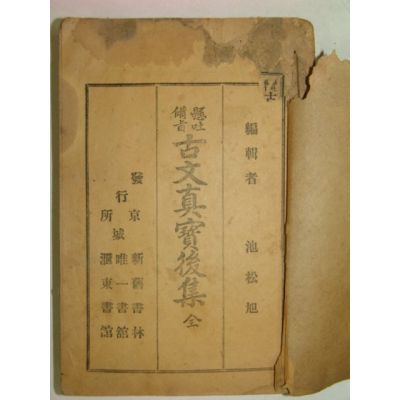 編輯者 池松旭
懸吐
備旨
古文真寶後集 全
發行所
京城
新舊書林
唯一書館
滙東書館